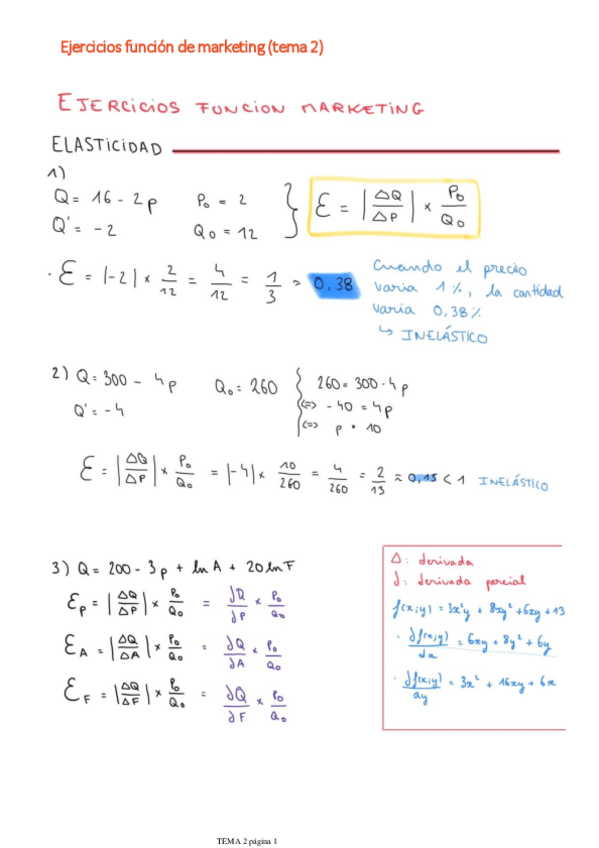 Ejercicios función de marketing (tema 2)
EJERCICIOS FUNCION MARKETING
ELASTICIDAD
1)
Q = 16 - 2p P₀ = 2
Q' = -2 Q₀ = 12
Ɛ = |ΔQ/ΔP| × P₀/Q₀
· Ɛ = |-2| × 2/12 = 4/12 = 1/3 ≈ 0,38
Cuando el precio
varia 1%, la cantidad
varia 0,38%
↳ INELÁSTICO
2) Q = 300 - 4p Q₀ = 260
Q' = -4
260 = 300 - 4p
<=> -40 = 4p
<=> p = 10
Ɛ = |ΔQ/ΔP| × P₀/Q₀ = |-4| × 10/260 = 4/260 = 2/13 ≈ 0,15 < 1 INELÁSTICO
3) Q = 200 - 3p + ln A + 20 ln F
Ɛp = |ΔQ/ΔP| × P₀/Q₀ = ∂Q/∂P × P₀/Q₀
ƐA = |ΔQ/ΔA| × P₀/Q₀ = ∂Q/∂A × P₀/Q₀
ƐF = |ΔQ/ΔF| × P₀/Q₀ = ∂Q/∂F × P₀/Q₀
Δ: derivada
∂: derivada parcial
f(x;y) = 3x²y + 8xy² + 6xy + 13
· ∂f(x;y)/dx = 6xy + 8y² + 6y
· ∂f(x;y)/ay = 3x² + 16xy + 6x
TEMA 2 página 1